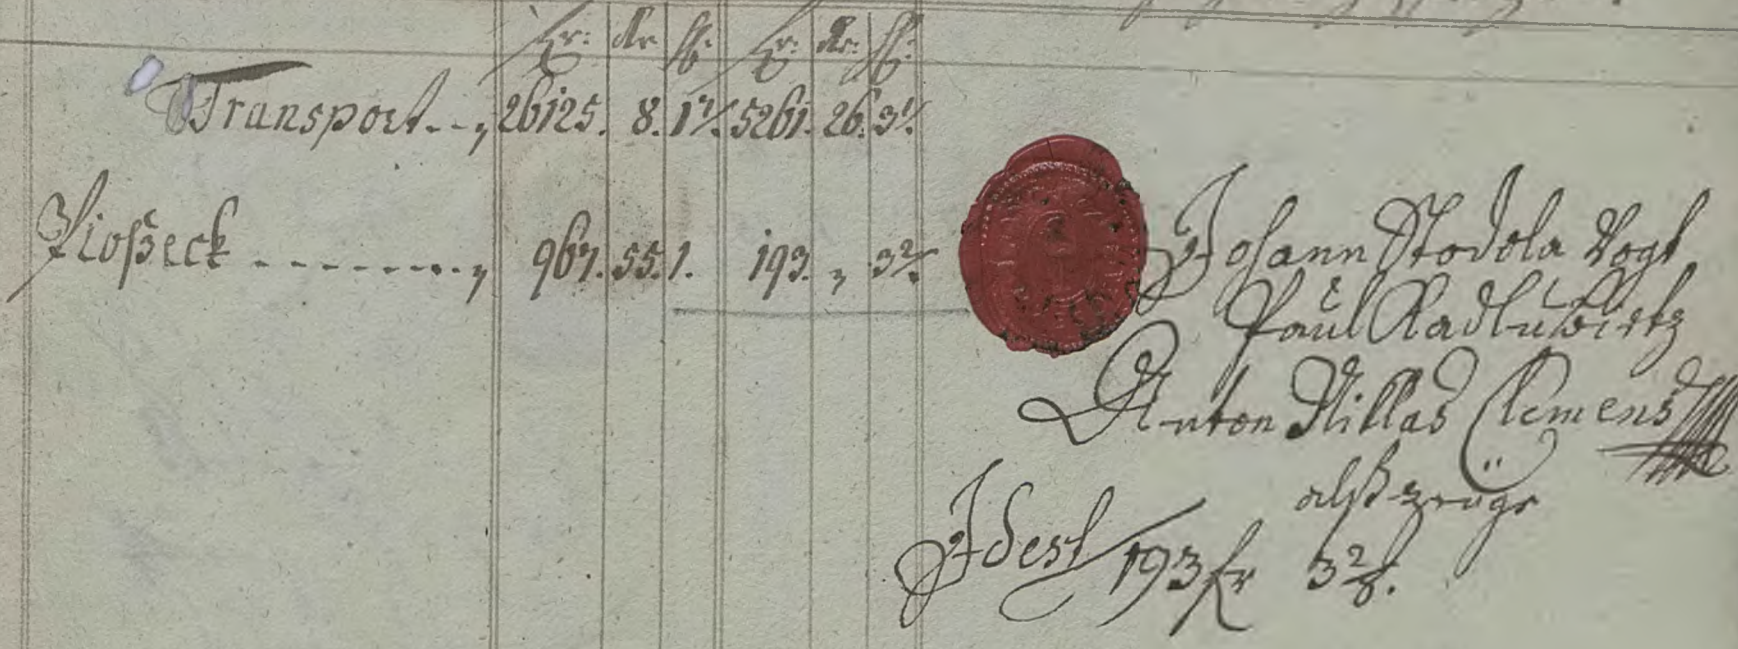 fr: kr ₰: fr: kr: ₰:
Transport. . „ 26125. 8. 1 5261. 26. 3
. . . . . . . . . „ 967. 55. 1. 193. „ 3 2/
Johann Stodola Vogt
Paul Radlu
Anton Millas Clemens
alß zeüge
Idest 193 fr 3 2/8.